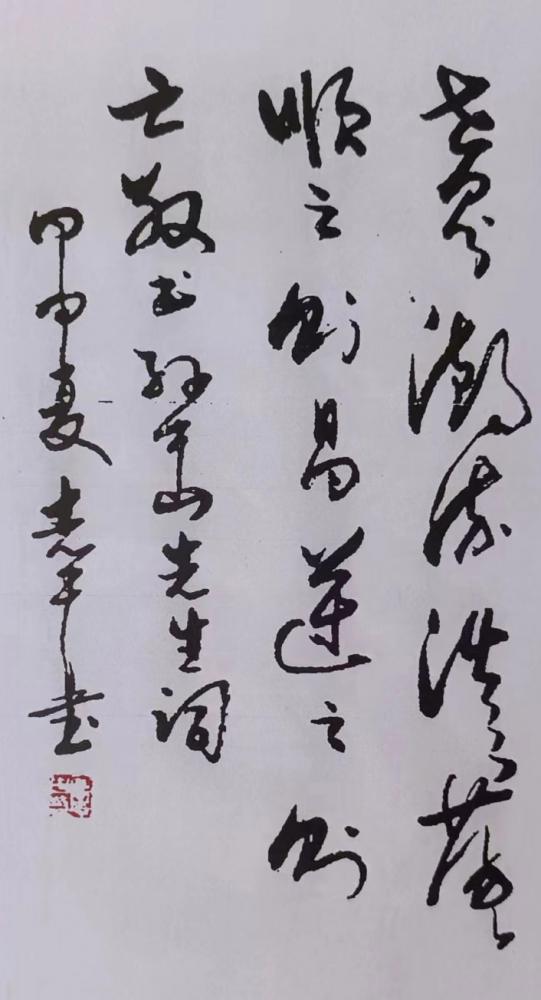 世界潮流浩浩荡荡
顺之则昌逆之则
亡敬书孙中山先生词
甲申夏平書